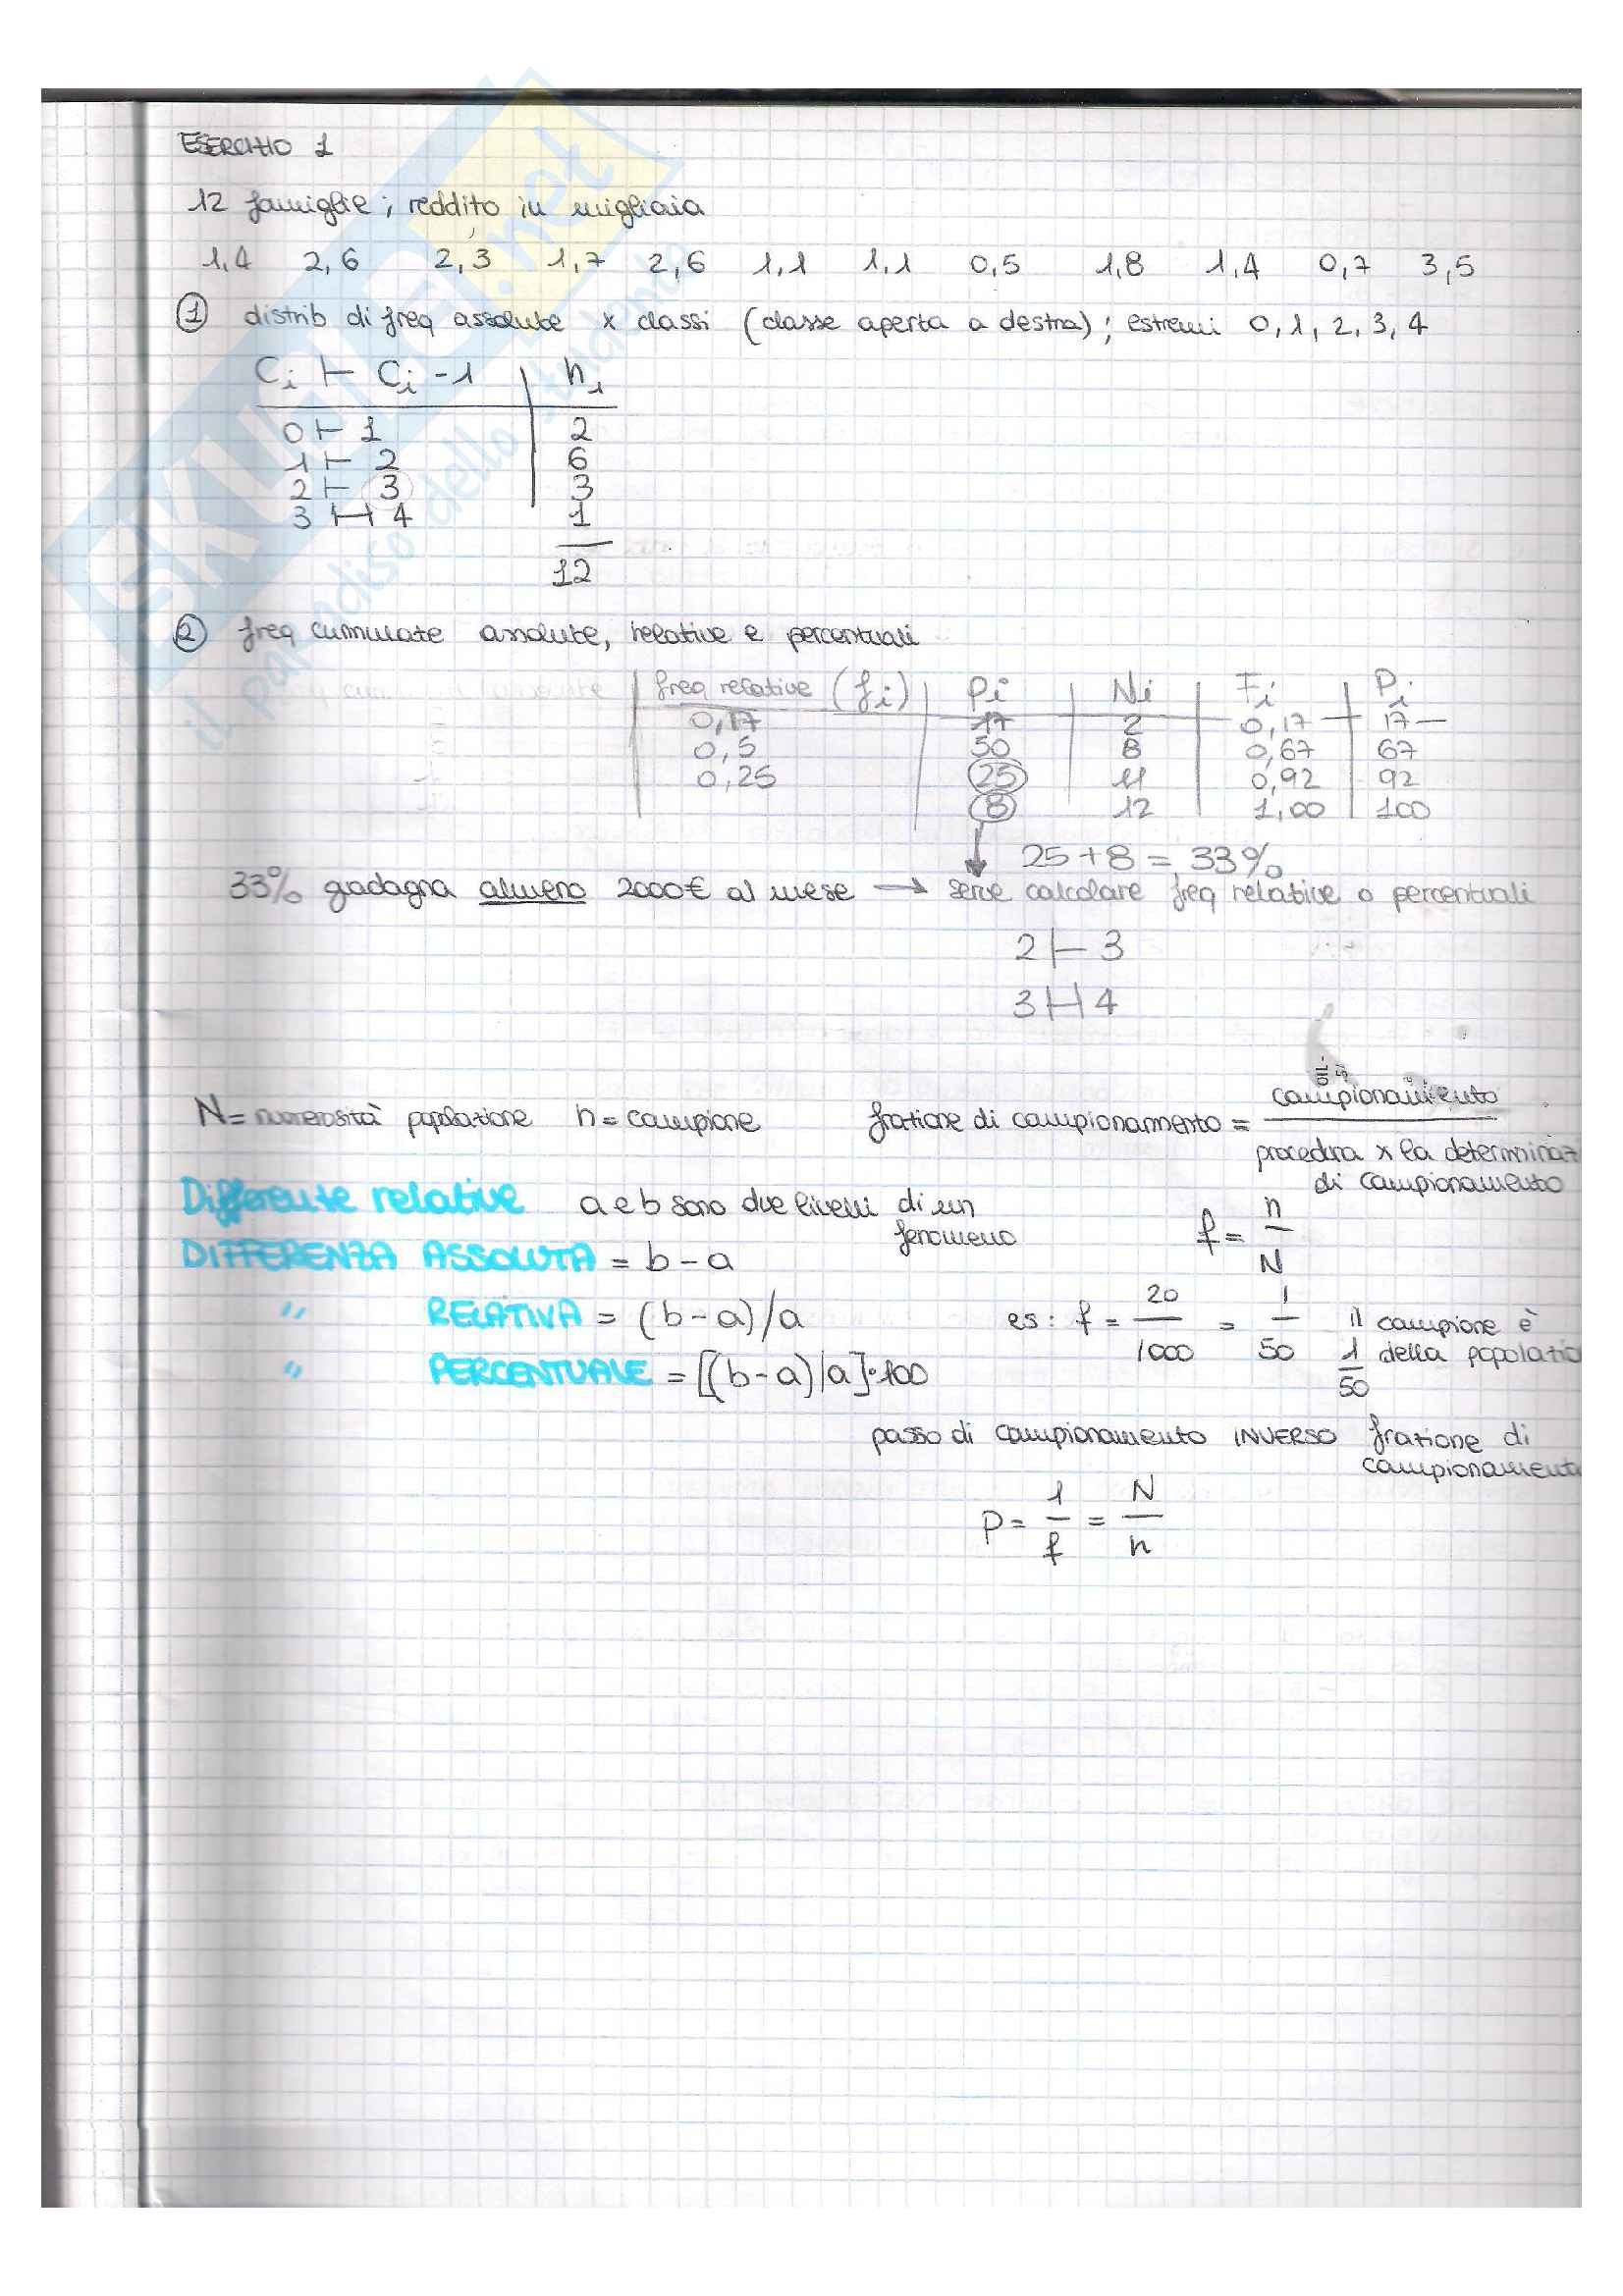 ESERCIZIO 1
12 famiglie; reddito in migliaia
1,4 2,6 2,3 1,7 2,6 1,1 1,1 0,5 1,8 1,4 0,7 3,5
① distrib di freq assolute x classi (classe aperta a destra); estremi 0, 1, 2, 3, 4
Ci ⊢ Ci -1 | n1
0 ⊢ 1 | 2
1 ⊢ 2 | 6
2 ⊢ 3 | 3
3 ⊢⊣ 4 | 1
12
② freq cumulate assolute, relative e percentuali
freq relative (fi) | Pi | Ni | Fi | Pi
0,17 | 17 | 2 | 0,17 | 17
0,5 | 50 | 8 | 0,67 | 67
0,25 | 25 | 11 | 0,92 | 92
8 | 12 | 1,00 | 100
25 + 8 = 33%
33% guadagna almeno 2000€ al mese → serve calcolare freq relative o percentuali
2 ⊢ 3
3 ⊢⊣ 4
N = numerosità popolazione n = campione frazione di campionamento = campionamento
procedura x la determinaz
di campionamento
Differenze relative a e b sono due livelli di un
fenomeno
f = n/N
DIFFERENZA ASSOLUTA = b - a
" RELATIVA = (b - a)/a
es: f = 20/1000 = 1/50 il campione è
1/50 della popolazio
" PERCENTUALE = [(b - a)/a]·100
passo di campionamento INVERSO frazione di
campionament
P = 1/f = N/n
SKUOLA.net
il paradiso dello studente